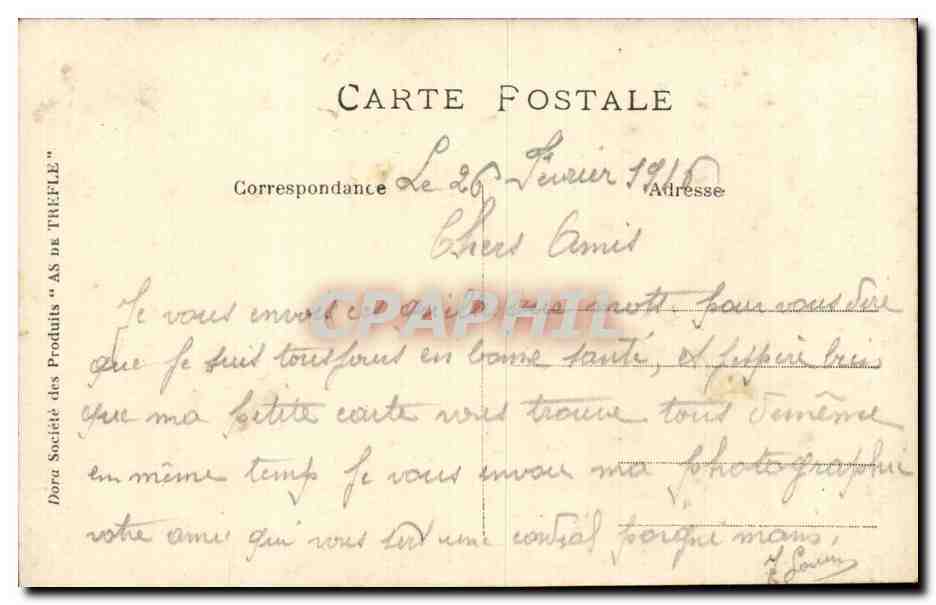 CARTE POSTALE
Correspondance Le 26 Février 1916 Adresse
Chers Amis
Je vous envois ce quelque mots pour vous dire
que Je suis toujours en bonne santé, et J'espere bien
que ma petite carte vous trouve tous demême
en même temp Je vous envoie ma photographie
votre ami qui vous sert une cordial poigné mains.
Dora Société des Produits "AS DE TREFLE"
CPAPHIL